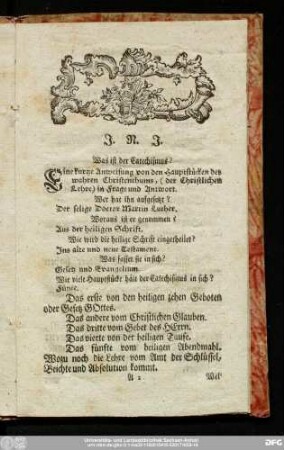 J. N. J.
Was ist der Catechismus?
Eine kurze Anweisung von den Hauptstücken des
wahren Christenthums, (der Christlichen
Lehre) in Frage und Antwort.
Wer hat ihn aufgesetzt?
Der selige Doctor Martin Luther.
Woraus ist er genommen?
Aus der heiligen Schrift.
Wie wird die heilige Schrift eingetheilet?
Ins alte und neue Testament.
Was fasset sie in sich?
Gesetz und Evangelium.
Wie viele Hauptstück hält der Catechismus in sich?
Fünfe.
Das erste von den heiligen zehen Geboten
oder Gesetz GOttes.
Das andere vom Christlichen Glauben.
Das dritte vom Gebet des HErrn.
Das vierte von der heiligen Taufe.
Das fünfte vom heiligen Abendmahl.
Wozu noch die Lehre vom Amt der Schlüssel,
Beichte und Absolution kommt.
A 2 Wel
Universitäts- und Landesbibliothek Sachsen-Anhalt
DFG